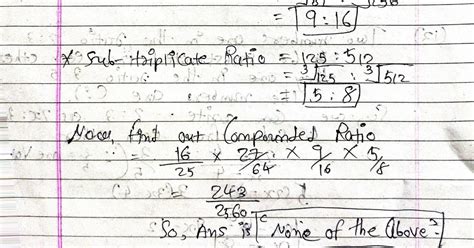 = 9:16
* Sub-triplicate Ratio = 125 : 512
= ³√125 : ³√512
= 5 : 8
Now, find out Compounded Ratio
= 16/25 × 27/64 × 9/16 × 5/8
= 243/2560
So, Ans is "None of the Above".